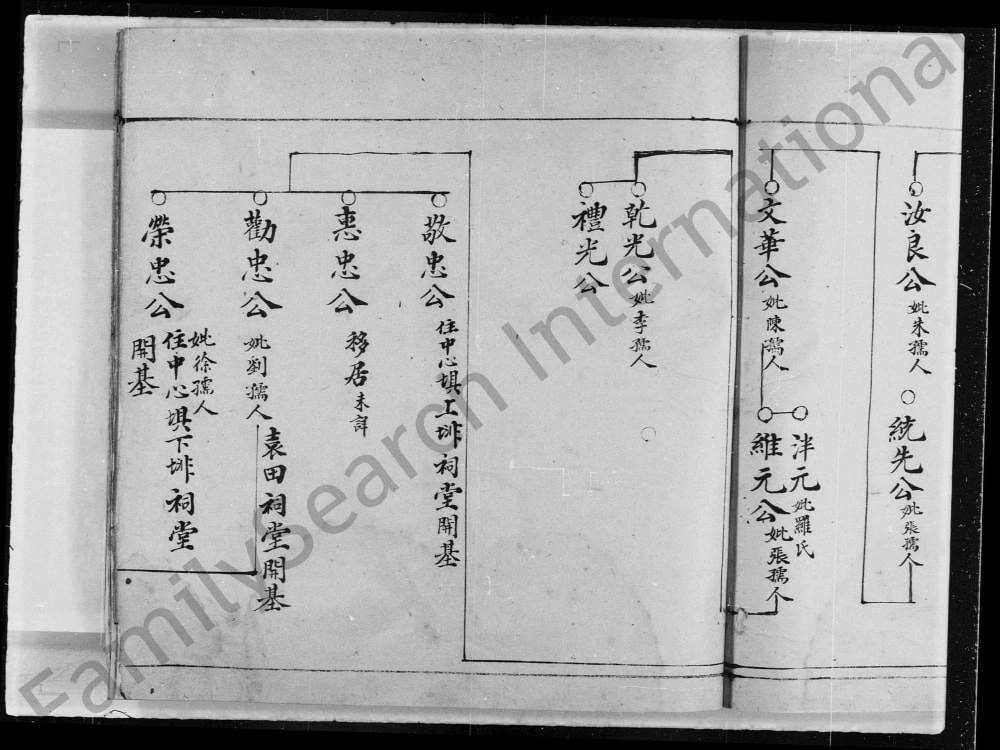 汝良公 妣朱孺人
統先公 妣張孺人
文華公 妣陳孺人
泮元 妣羅氏
維元公 妣張孺人
乾光公 妣李孺人
禮光公
敬忠公 住中心埧工墩祠堂開基
惠忠公 移居未詳
勸忠公 妣劉孺人
袁田祠堂開基
榮忠公 妣徐孺人
住中心埧下墩祠堂
開基
FamilySearch International